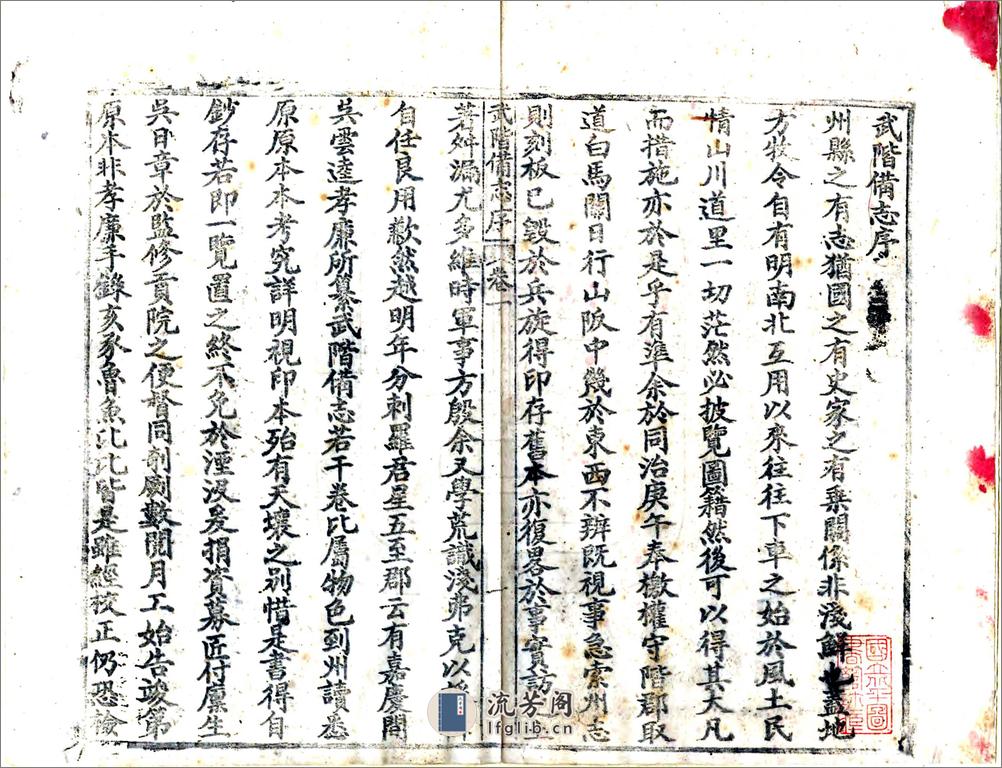 武階備志序
州縣之有志猶國之有史家之有乘關係非淺鮮也蓋地
方牧令自有明南北互用以來往往下車之始於風土民
情山川道里一切茫然必披覽圖籍然後可以得其大凡
而措施亦於是乎有準余於同治庚午奉檄權守階郡取
道白馬關日行山陬中幾於東西不辨既視事急索州志
則刻板已毀於兵旋得印存舊本亦復畧於事實訪
武階備志序 卷一 一
若舛漏尤多維時軍事方殷余又學荒識淺弗克以
自任良用歉然越明年分刺羅君星五至郡云有嘉慶間
吳雲逵孝廉所纂武階備志若干卷比屬物色到州讀悉
原原本本考究詳明視印本殆有天壤之別惜是書得自
鈔存若即一覽置之終不免於湮没爰捐資募匠付廩生
吳日章於監修貢院之便督同剞劂數閱月工始告竣第
原本非孝廉手錄亥豕魯魚比比皆是雖經校正仍恐
流芳阁
lfglib.cn